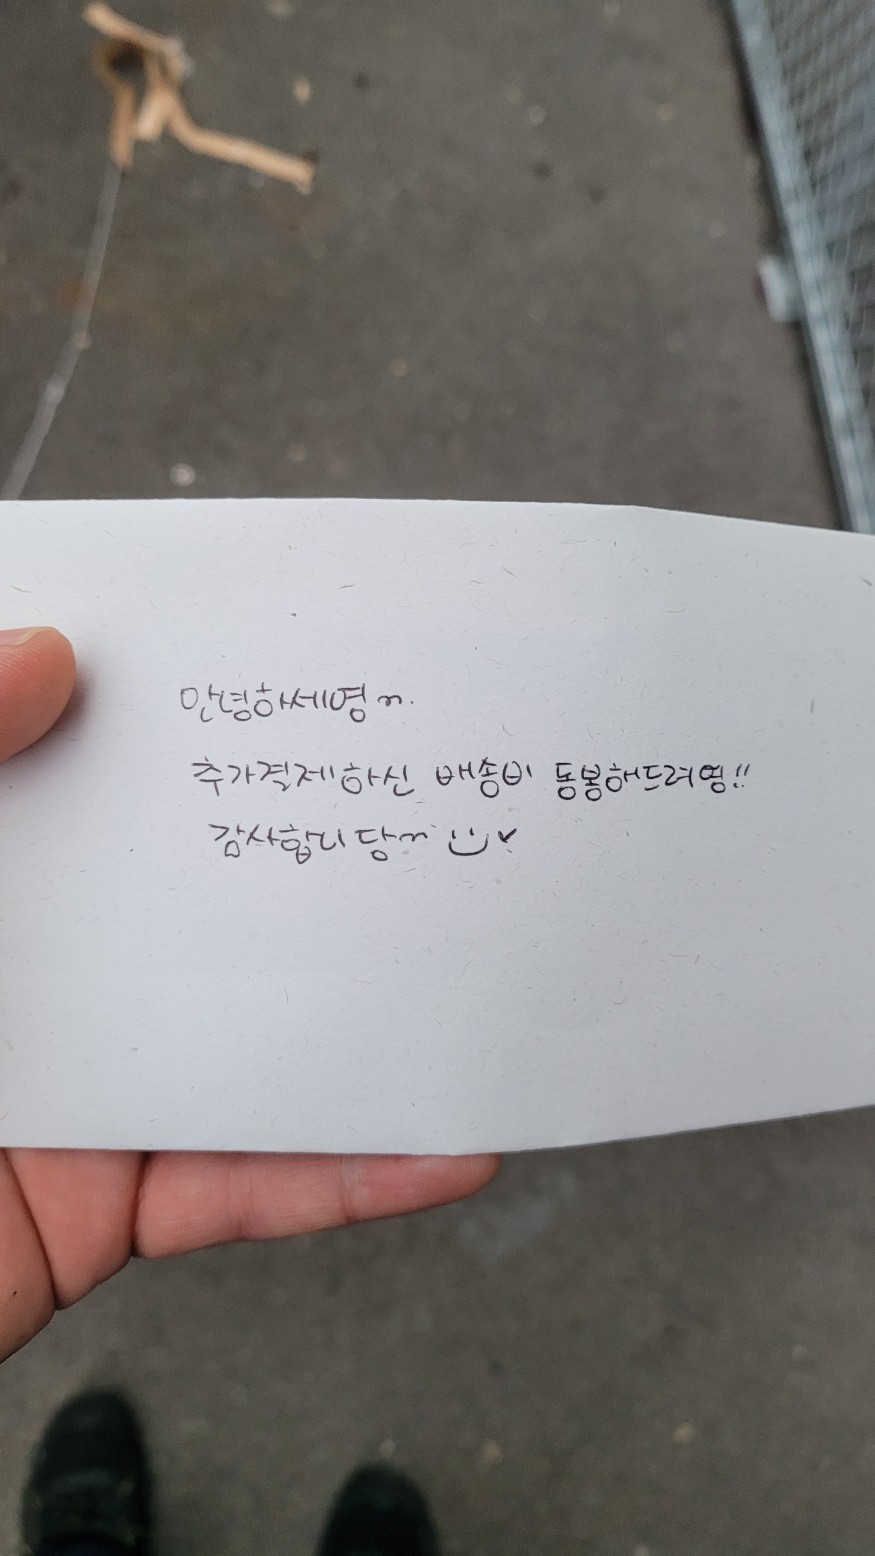 안녕하세영~.
추가결제하신 배송비 동봉해드려영!!
감사합니당~ :)✓